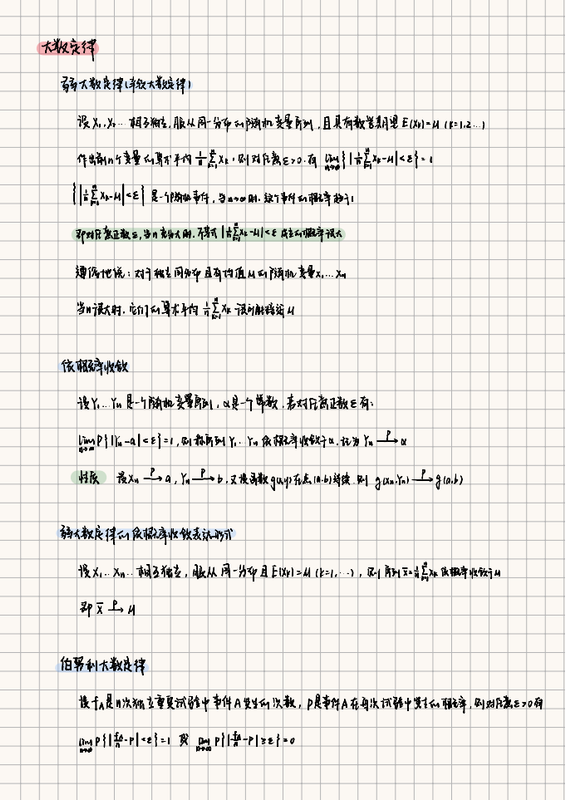 大数定律
弱大数定律(辛钦大数定律)
设 X₁, X₂… 相互独立, 服从同一分布的随机变量序列, 且具有数学期望 E(Xₖ)=μ (k=1,2…)
作出前n个变量的算术平均 1/n ∑ₖ₌₁ⁿ Xₖ, 则对任意ε>0. 有 lim n→∞ {|1/n ∑ₖ₌₁ⁿ Xₖ-μ|<ε}=1
{|1/n ∑ₖ₌₁ⁿ Xₖ-μ|<ε} 是一个随机事件, 当n→∞时. 这个事件的概率趋于1
即对任意正数ε, 当n充分大时. 不等式 |1/n ∑ₖ₌₁ⁿ Xₖ-μ|<ε 成立的概率很大
通俗地说: 对于独立同分布且有均值μ的随机变量X₁…Xₙ
当n很大时. 它们的算术平均 1/n ∑ₖ₌₁ⁿ Xₖ 很可能接近μ
依概率收敛
设Y₁…Yₙ是一个随机变量序列, a是一个常数. 若对任意正数ε有:
lim n→∞ P{|Yₙ-a|<ε}=1, 则称序列Y₁…Yₙ依概率收敛于a. 记为 Yₙ —P→ a
性质 设Xₙ —P→ a, Yₙ —P→ b. 又设函数g(x,y)在点(a,b)连续. 则 g(Xₙ,Yₙ) —P→ g(a,b)
弱大数定律的依概率收敛表达形式
设X₁…Xₙ…相互独立, 服从同一分布且E(Xₖ)=μ (k=1,…), 则序列 X̄=1/n ∑ₖ₌₁ⁿ Xₖ 依概率收敛于μ
即 X̄ —P→ μ
伯努利大数定律
设fA是n次独立重复试验中事件A发生的次数, p是事件A在每次试验中发生的概率. 则对任意ε>0有
lim n→∞ P{|fA/n-p|<ε}=1 或 lim n→∞ P{|fA/n-p|≥ε}=0